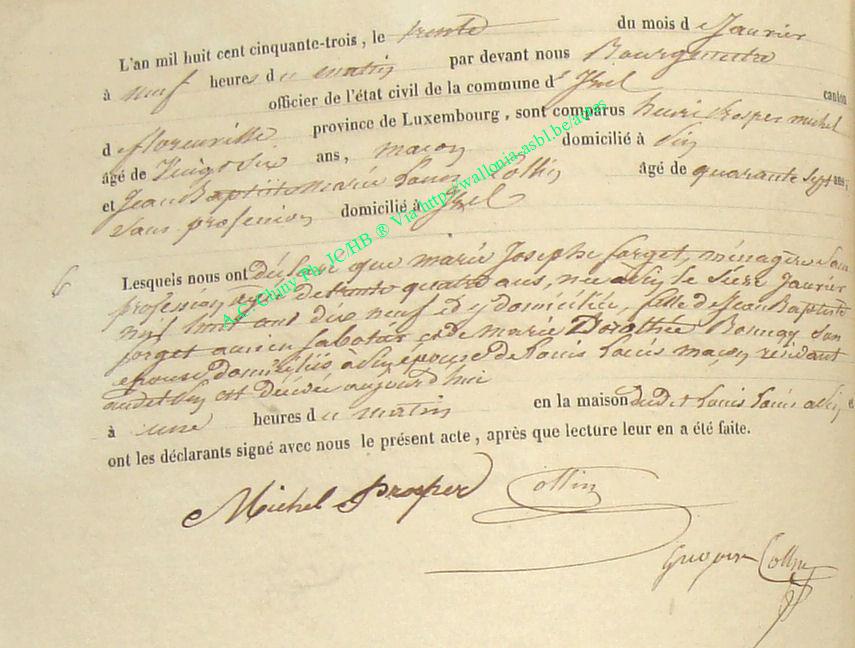 L'an mil huit cent cinquante-trois, le trente du mois de Janvier
à neuf heures du matin par devant nous Bourgmestre
officier de l'état civil de la commune d'Izel canton
de florenville province de Luxembourg, sont comparus henri Prosper michel
âgé de Vingt Six ans, maçon domicilié à
et Jean Baptiste marie Louis Collin âgé de quarante Sept ans;
Sans profession domicilié à Izel
6
Lesquels nous ont déclaré que marie Josephe forget, ménagère San
profession âgée de trente quatre ans, née le Janvier
mil huit cent dix neuf et y domiciliée, fille de Jean Baptiste
forget ancien Sabotier et de marie Dorothée Son
épouse domiciliés à épouse de Louis Louis maçon résidant
audit est décédée aujourd'hui
à une heures du matin en la maison dudit Louis Louis
ont les déclarants signé avec nous le présent acte, après que lecture leur en a été faite.
Michel Prosper Collin
Collin
A.C. Chiny Ph. JC/HB ® Via http://wallonia-asbl.be/actes